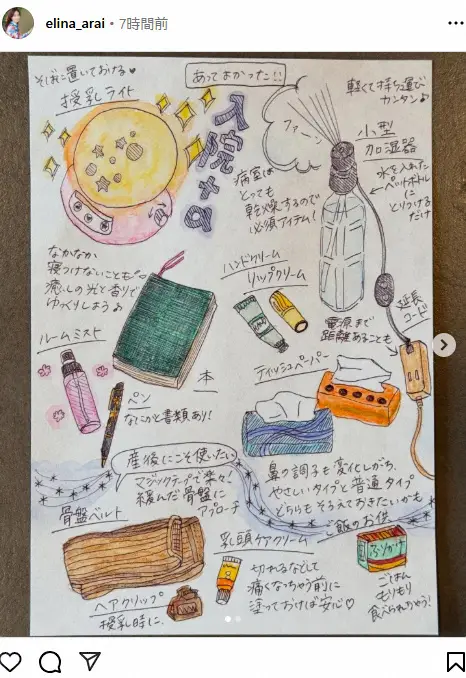 elina_arai・7時間前
あってよかった!!
入院中の
そばに置いておける♥
授乳ライト
軽くて持ち運び
カンタン♪
小型
加湿器
水を入れた
ペットボトル
に
とりつける
だけ
ファーン
病室は
とっても
乾燥するので
必須アイテム!
なかなか
寝つけないことも
癒しの光と香りで
ゆっくりしよう♪
ハンドクリーム
リップクリーム
延長
コード
電源まで
距離あることも
ルームミスト
本
ペン
なにかと書類あり!
ティッシュペーパー
鼻の調子も変化しがち、
やさしいタイプと普通タイプ
どちらもそろえておきたいかも
産後にこそ使いたい
マジックテープで楽々!
緩んだ骨盤に
アプローチ
骨盤ベルト
乳頭ケアクリーム
切れるなどして
痛くなっちゃう前に
塗っておけば安心♡
ご飯のお供
ふりかけ
ごはん
もりもり
食べられちゃう!
ヘアクリップ
授乳時に、